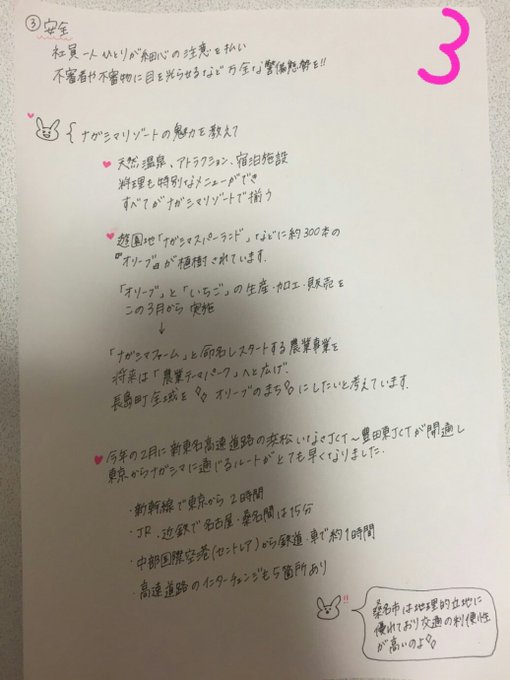 3
③ 安全
社員一人ひとりが細心の注意を払い
不審者や不審物に目を光らせるなど万全な警備態勢を!!
ナガシマリゾートの魅力を教えて
天然温泉、アトラクション、宿泊施設
料理も特別なメニューができ
すべてがナガシマリゾートで揃う
遊園地「ナガシマスパーランド」などに約300本の
『オリーブ』が植樹されています.
「オリーブ」と「いちご」の生産・加工・販売を
この3月から実施
↓
「ナガシマファーム」と命名しスタートする農業事業を
将来は「農業テーマパーク」へと広げ、
長島町全域を オリーブのまち にしたいと考えています.
今年の2月に新東名高速道路の浜松いなさJCT~豊田東JCTが開通し
東京からナガシマに通じるルートがとても早くなりました.
・新幹線で東京から2時間
・JR・近鉄で名古屋・桑名間は15分
・中部国際空港(セントレア)から鉄道・車で約1時間
・高速道路のインターチェンジも5箇所あり
!!
桑名市は地理的立地に
優れており交通の利便性
が高いのよ